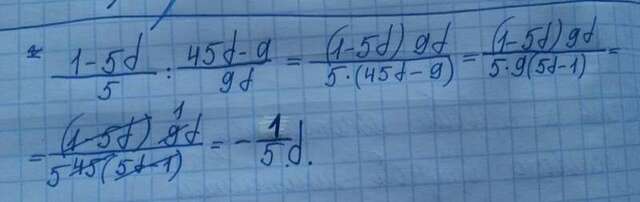 * (1-5d)/5 : (45d-9)/9d = (1-5d) 9d / 5·(45d-9) = (1-5d) 9d / 5·9(5d-1) =
= (1-5d) 9d 1 / 5 45(5d-1) = - 1/5 d.